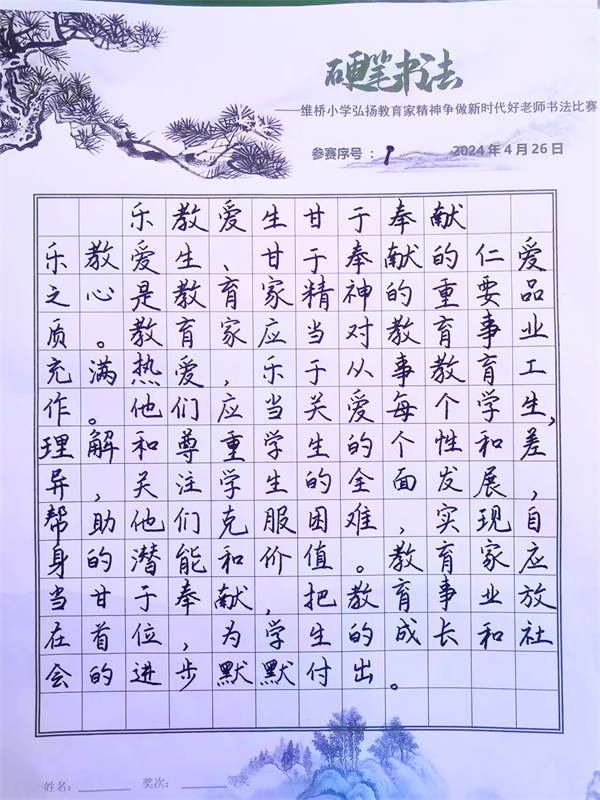 硬笔书法
——维桥小学弘扬教育家精神争做新时代好老师书法比赛
参赛序号：1 2024年4月26日
乐教爱生甘于奉献
乐教爱生、甘于奉献的仁爱
之心是教育家精神的重要品
质。教育家应当对教育事业
充满热爱，乐于从事教育工
作。他们应当关爱每个学生，
理解和尊重学生的个性和差
异，关注学生的全面发展，
帮助他们克服困难，实现自
身的潜能和价值。教育家应
当甘于奉献，把教育事业放
在首位，为学生的成长和社
会的进步默默付出。
姓名：________ 奖次：________等奖